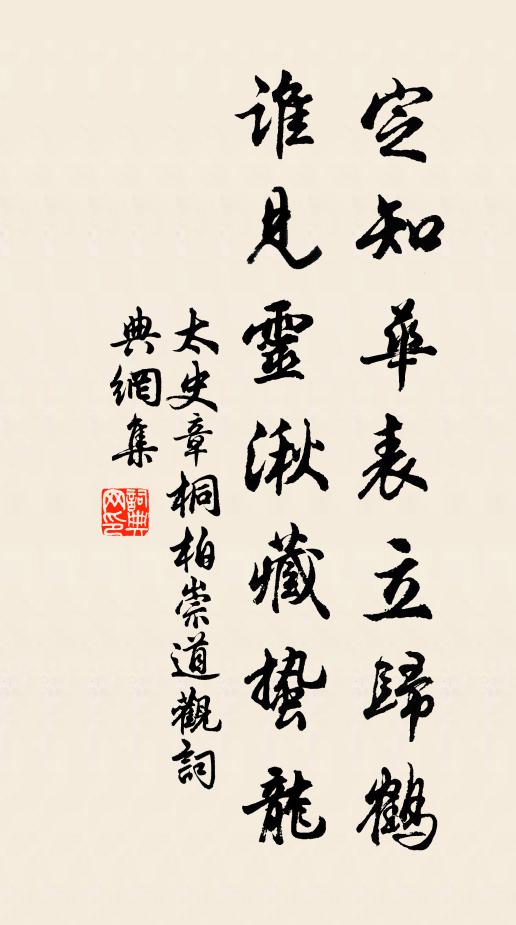 定知華表立歸鶴
誰見靈湫藏蟄龍
太史章桐柏崇道觀詞
典網集
詞典网印